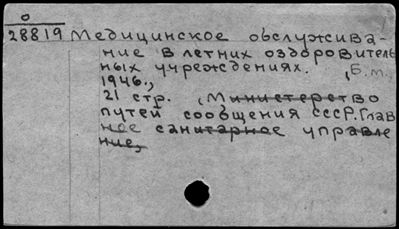 0
28819 Медицинское обслужива-
ние в летних оздоровитель
ных учреждениях. Б.м.,
1946.,
21 стр. (Министерство
путей сообщения СССР. Глав
ное санитарное управле
ние,